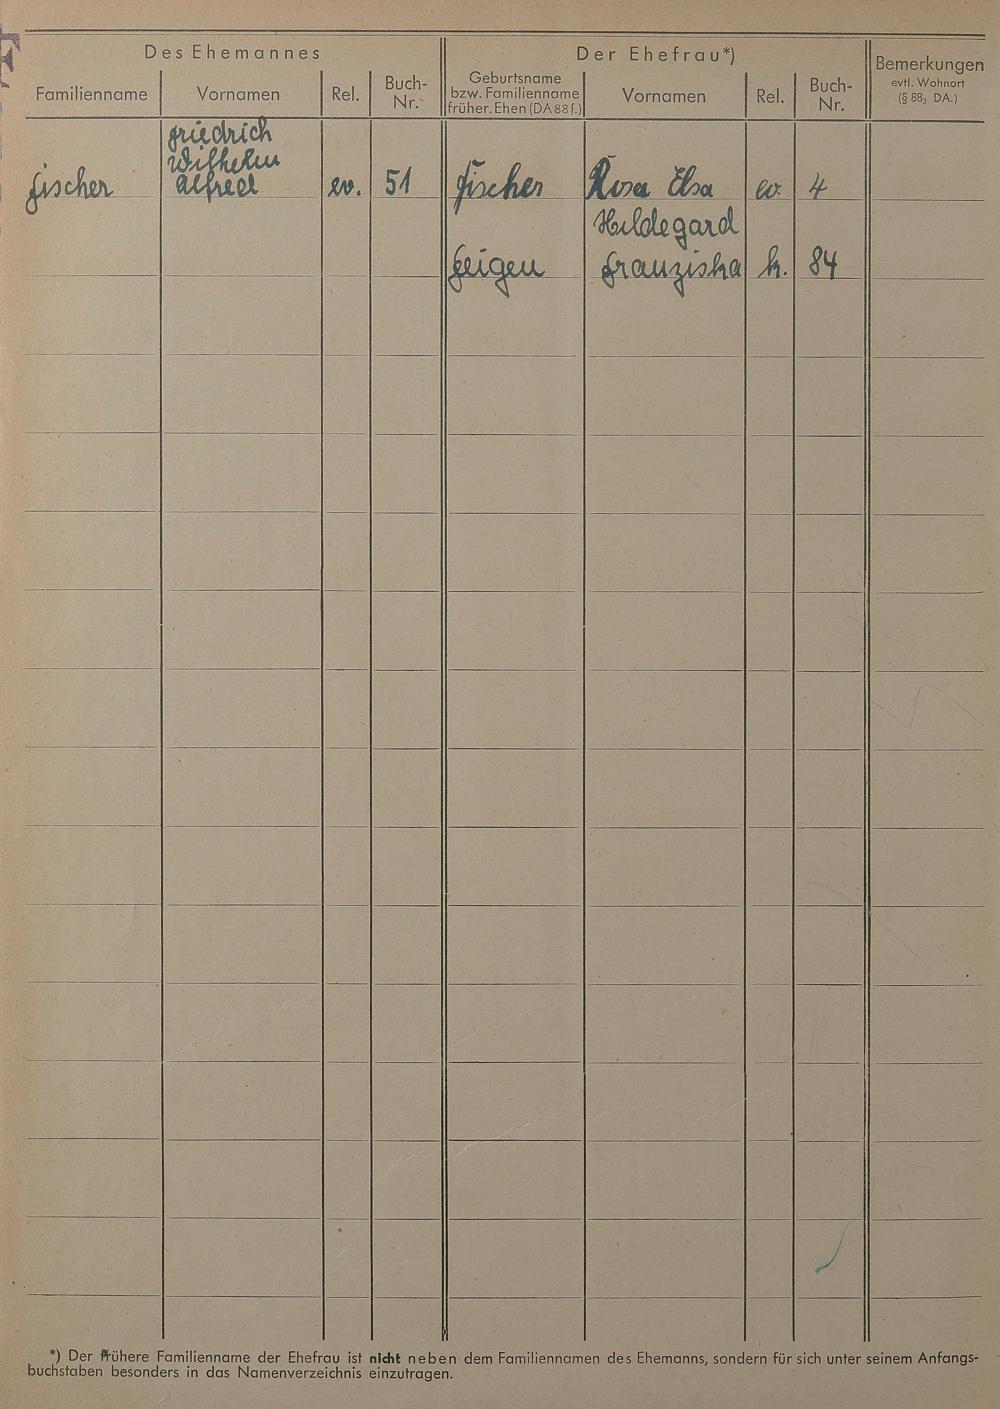 F
Des Ehemannes
Der Ehefrau*)
Bemerkungen
evtl. Wohnort
(§ 88₃ DA.)
Familienname
Vornamen
Rel.
Buch-
Nr.
Geburtsname
bzw. Familienname
früher. Ehen (DA 88 f.)
Vornamen
Rel.
Buch-
Nr.
Friedrich
Wilhelm
Fischer Alfred ev. 51 Fischer Rosa Elsa ev. 4
Hildegard
Feigen Franziska k. 84
*) Der frühere Familienname der Ehefrau ist nicht neben dem Familiennamen des Ehemanns, sondern für sich unter seinem Anfangs-
buchstaben besonders in das Namenverzeichnis einzutragen.